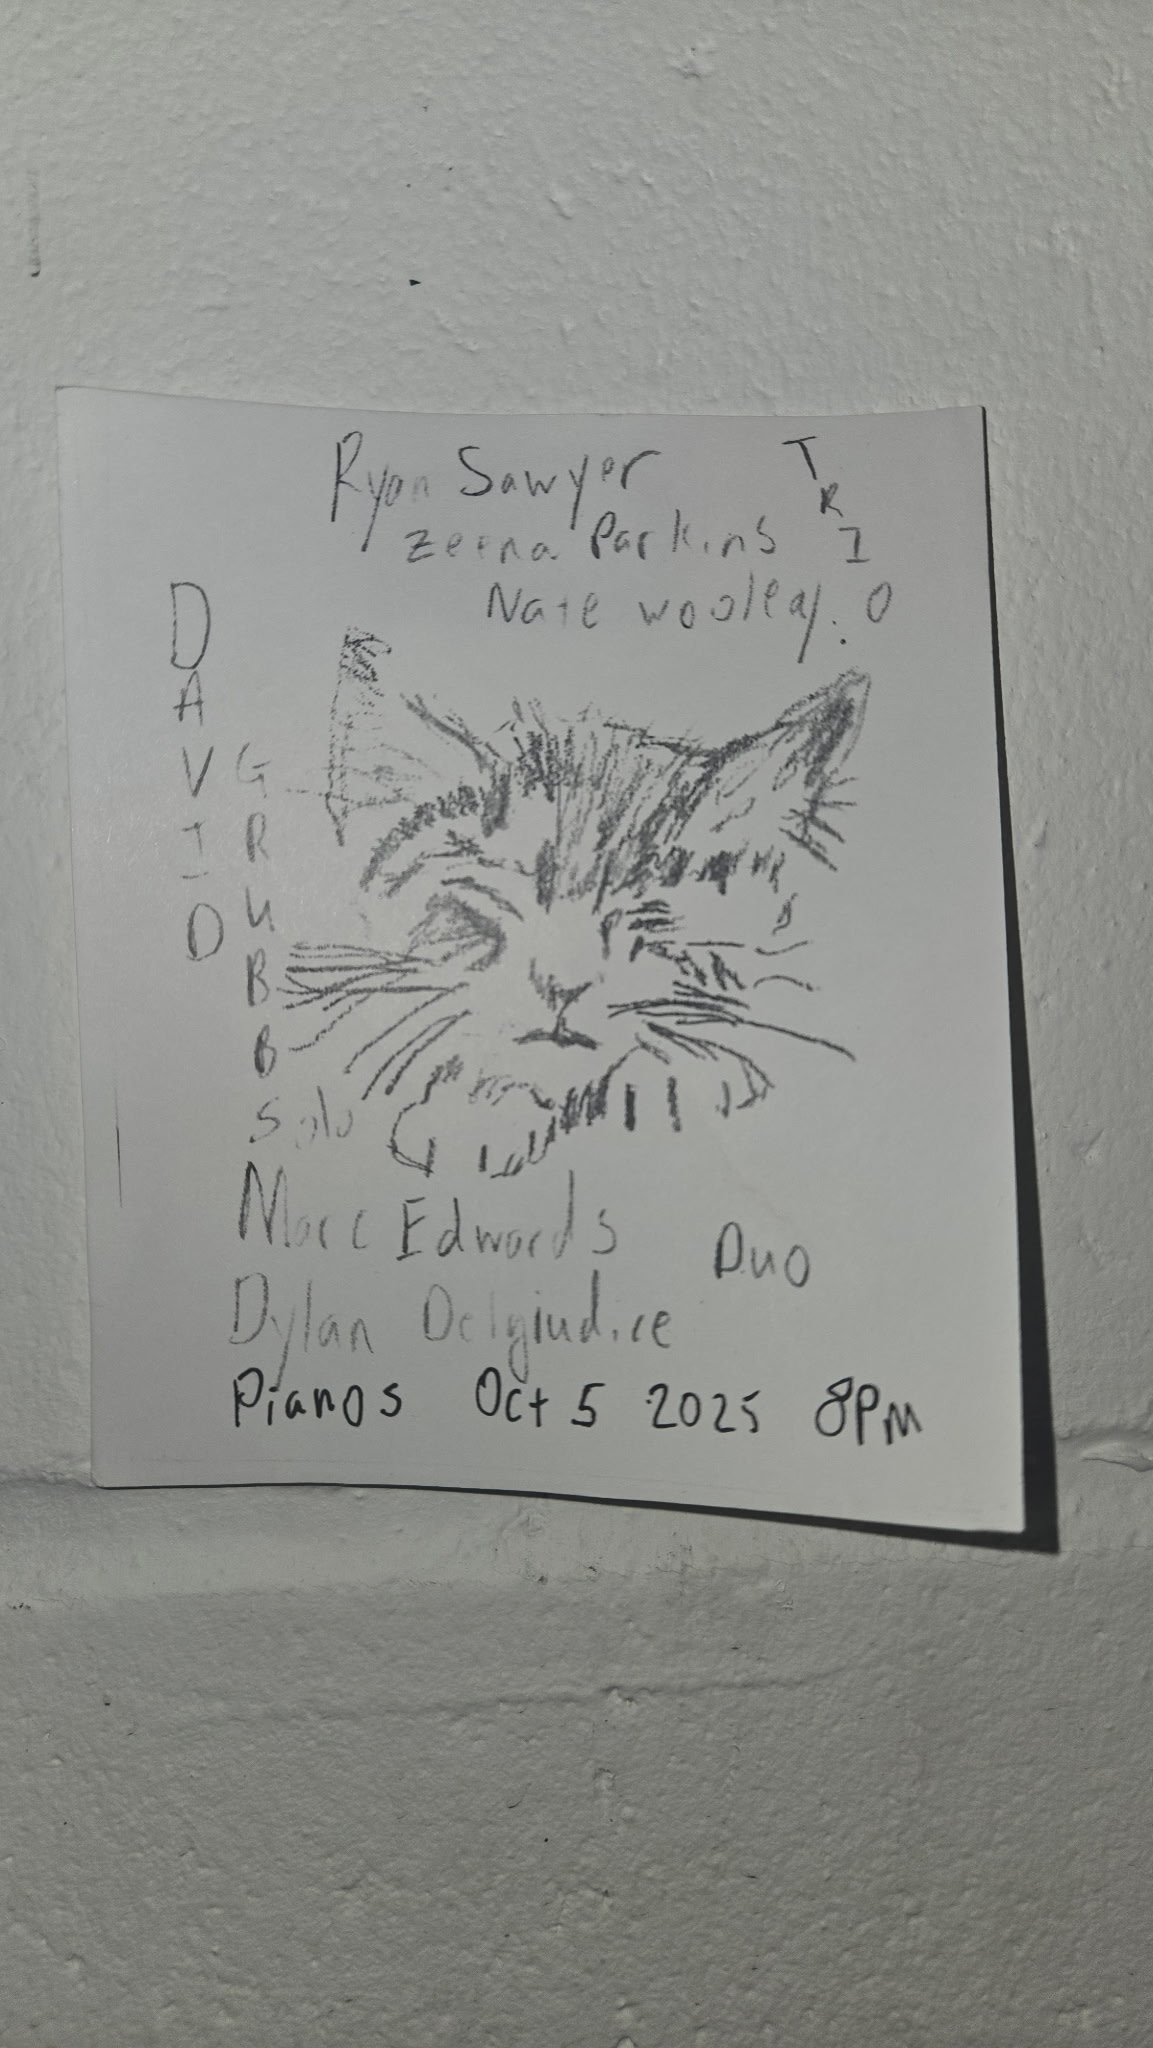 Ryan Sawyer
Zeena Parkins
Nate wooley.
TRIO
DAVID
GRUBBB
Solo
Marc Edwards
Duo
Dylan Delgiudice
Pianos Oct 5 2025 8PM